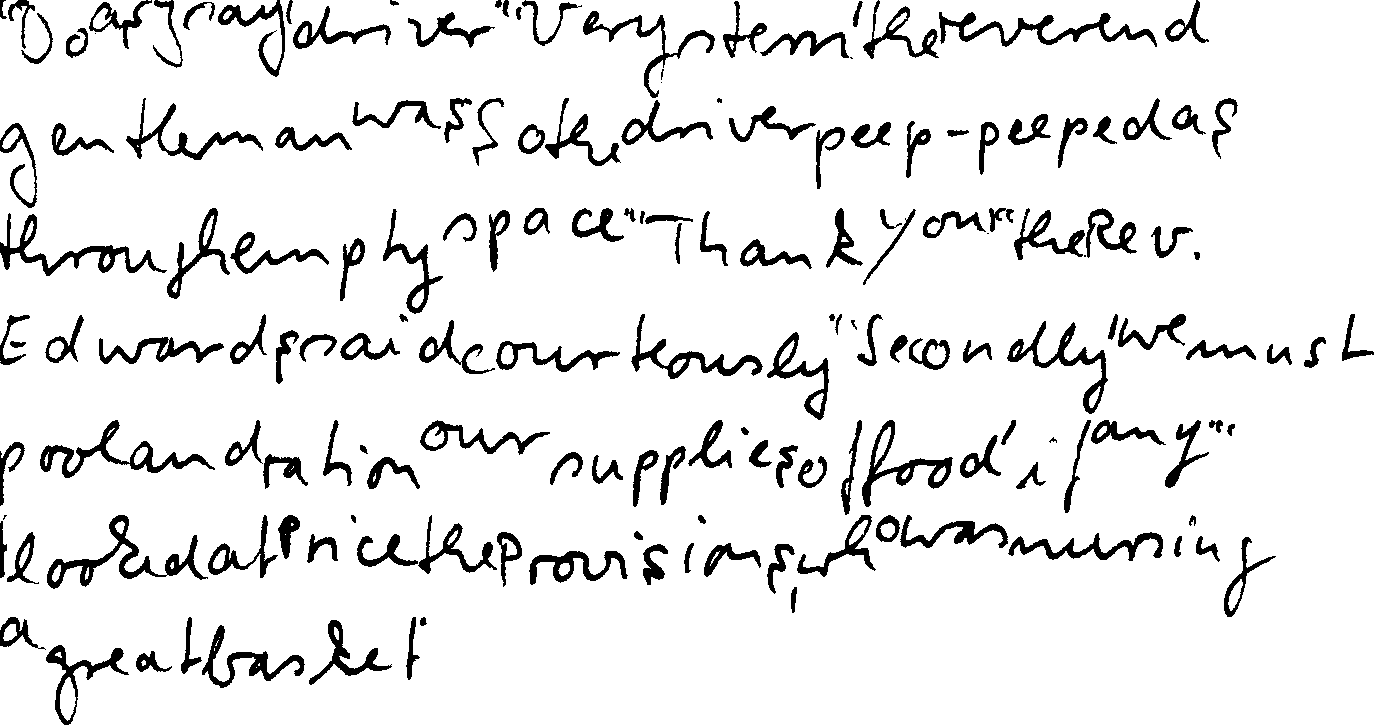 "Do as I say driver" Very stern the reverend
gentleman was So the driver peep-peeped as
through empty space "" Thank you "" the Rev.
Edwards said courteously "" Secondly "we must
pool and ration our supplies of food' if any ""
He looked at Price the Provisions, who was nursing
a great basket